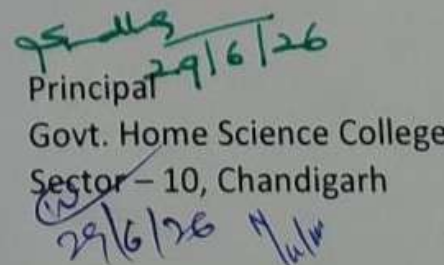 29/6/26
Principal
Govt. Home Science College
Sector – 10, Chandigarh
29/6/26